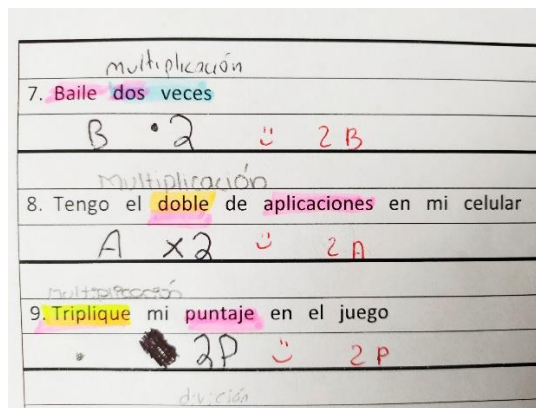 multiplicación
7. Baile dos veces
B · 2 :) 2B
Multiplicación
8. Tengo el doble de aplicaciones en mi celular
A x2 :) 2A
multiplicación
9. Triplique mi puntaje en el juego
2P :) 2P
división